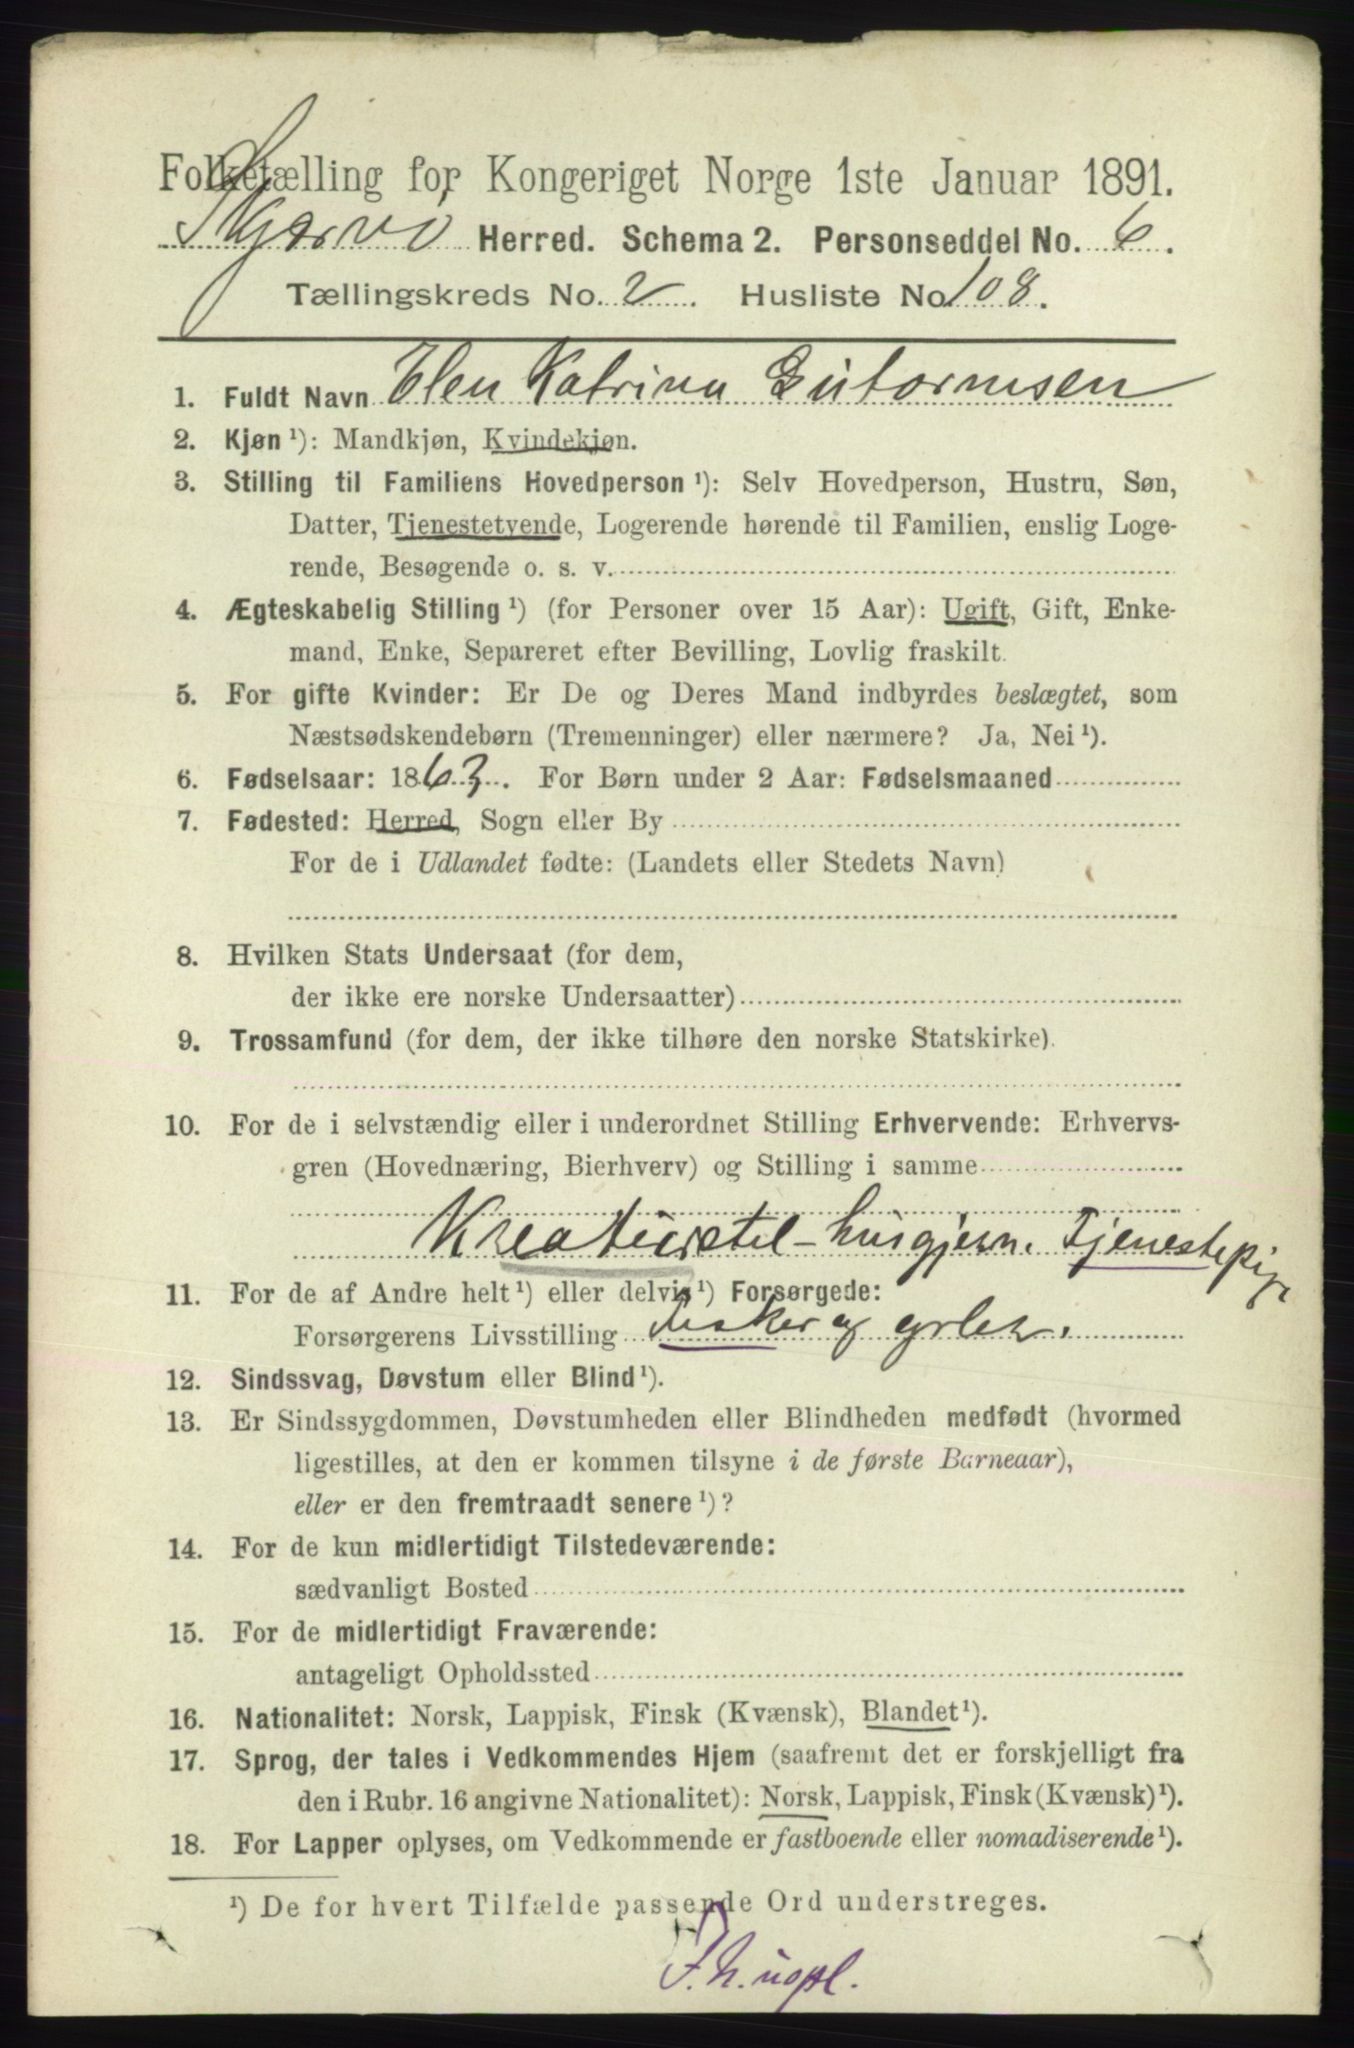 Folketælling for Kongeriget Norge 1ste Januar 1891.
Skjervö Herred. Schema 2. Personseddel No. 6.
Tællingskreds No. 2 Husliste No. 108.
1. Fuldt Navn Elen Katrina Gutormsen
2. Kjøn ¹): Mandkjøn, Kvindekjøn.
3. Stilling til Familiens Hovedperson ¹): Selv Hovedperson, Hustru, Søn,
Datter, Tjenestetyende, Logerende hørende til Familien, enslig Loge-
rende, Besøgende o. s. v.
4. Ægteskabelig Stilling ¹) (for Personer over 15 Aar): Ugift, Gift, Enke-
mand, Enke, Separeret efter Bevilling, Lovlig fraskilt.
5. For gifte Kvinder: Er De og Deres Mand indbyrdes beslægtet, som
Næstsødskendebørn (Tremenninger) eller nærmere? Ja, Nei ¹).
6. Fødselsaar: 1863. For Børn under 2 Aar: Fødselsmaaned
7. Fødested: Herred, Sogn eller By
For de i Udlandet fødte: (Landets eller Stedets Navn)
8. Hvilken Stats Undersaat (for dem,
der ikke ere norske Undersaatter)
9. Trossamfund (for dem, der ikke tilhøre den norske Statskirke).
10. For de i selvstændig eller i underordnet Stilling Erhvervende: Erhvervs-
gren (Hovednæring, Bierhverv) og Stilling i samme
Kreaturstel - husgjern. Tjenestepige
11. For de af Andre helt ¹) eller delvis ¹) Forsørgede:
Forsørgerens Livsstilling fisker og
12. Sindssvag, Døvstum eller Blind ¹).
13. Er Sindssygdommen, Døvstumheden eller Blindheden medfødt (hvormed
ligestilles, at den er kommen tilsyne i de første Barneaar),
eller er den fremtraadt senere ¹)?
14. For de kun midlertidigt Tilstedeværende:
sædvanligt Bosted
15. For de midlertidigt Fraværende:
antageligt Opholdssted
16. Nationalitet: Norsk, Lappisk, Finsk (Kvænsk), Blandet ¹).
17. Sprog, der tales i Vedkommendes Hjem (saafremt det er forskjelligt fra
den i Rubr. 16 angivne Nationalitet): Norsk, Lappisk, Finsk (Kvænsk) ¹).
18. For Lapper oplyses, om Vedkommende er fastboende eller nomadiserende ¹).
¹) De for hvert Tilfælde passende Ord understreges.